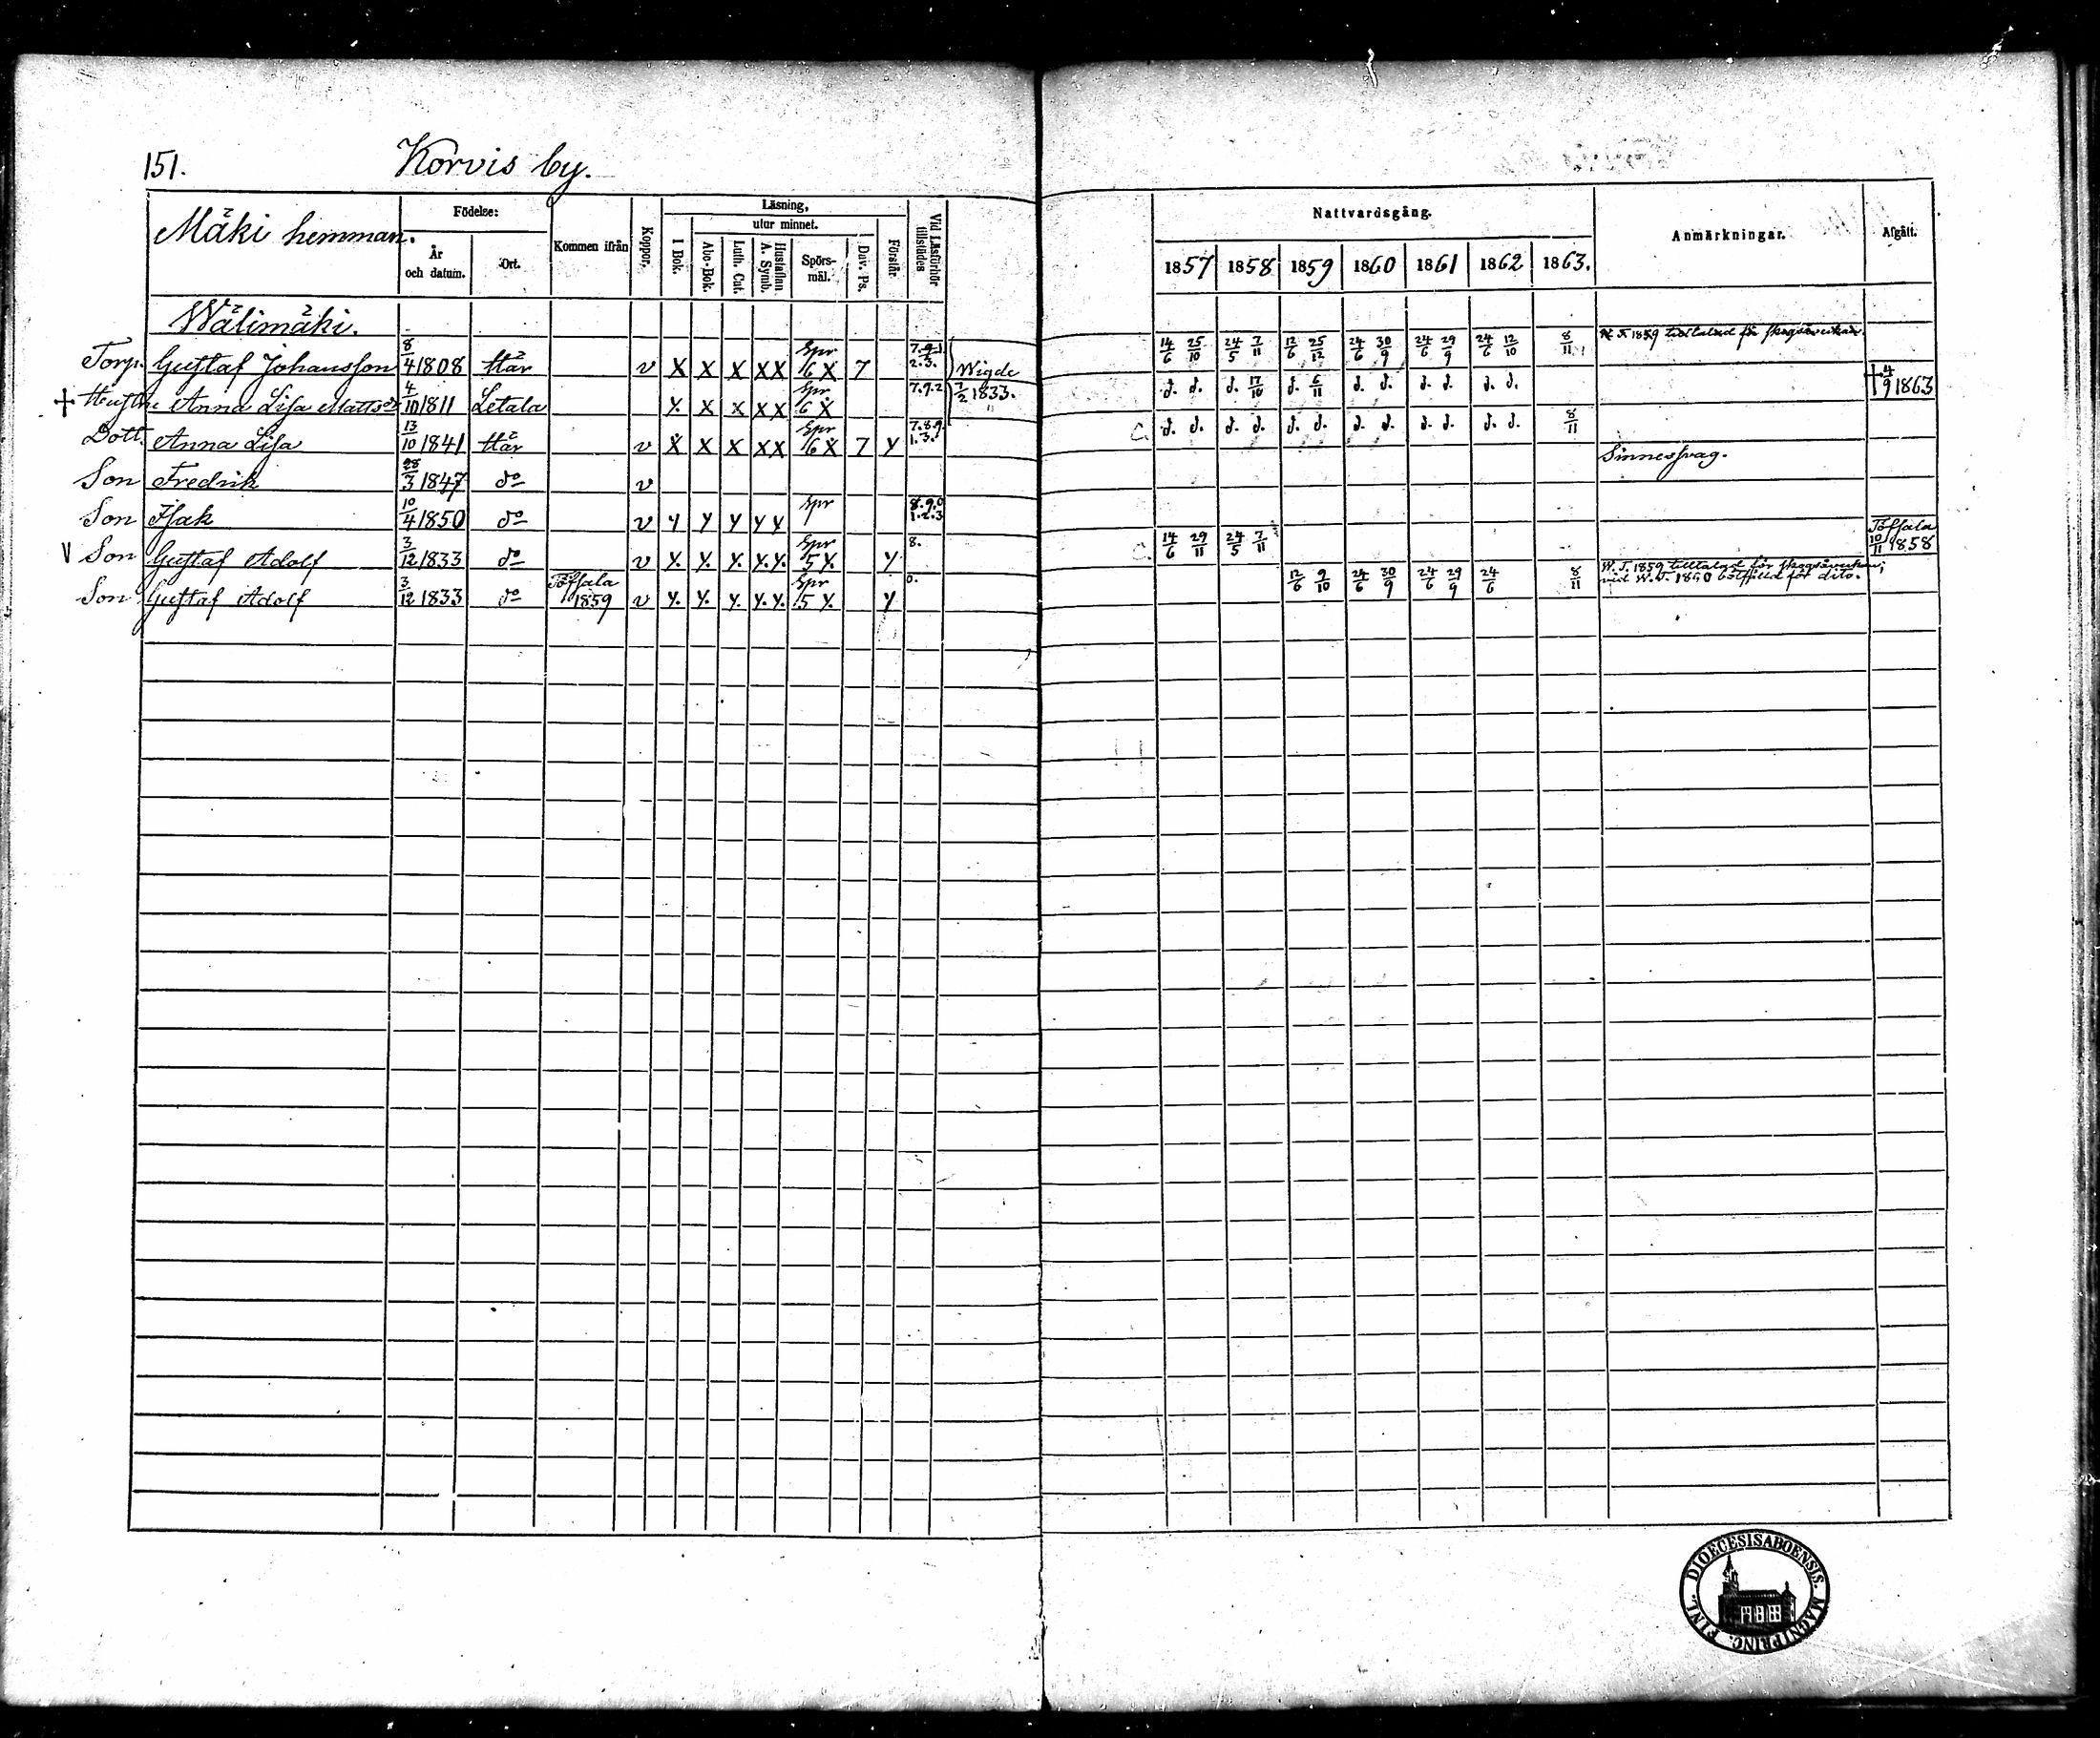 151. Korvis by.
Mäki hemman. Födelse: År och datum. Ort. Kommen ifrån Koppor. Läsning, I Bok. utur minnet. Abc-Bok. Luth. Cat. Hustaflan A. Symb. Spörsmål. Dav. Ps. Förstår Vid Läsförhör tillstädes
Nattvardsgång. 1857 1858 1859 1860 1861 1862 1863. Anmärkningar. Afgått.
Wälimäki.
Torp. Gustaf Johansson 8/4 1808 Här v X X X XX Spr 6 X 7 7.9.1. 2.3. Wigde 14/6 25/10 24/5 7/11 12/6 25/12 24/6 30/9 24/6 29/9 24/6 12/10 8/11 W. T. 1859 tilltalad för skogsåverkan.
+ Hustru Anna Lisa Mattsdr 4/10 1811 Letala X X X XX Spr 6 X 7.9.2 1/2 1833. d. d. d. 17/10 d. 6/11 d. d. d. d. d. d. + 4/9 1863
Dott. Anna Lisa 13/10 1841 Här v X X X XX Spr 6 X 7 Y 7.8.9. 1.3. C. d. d. d. d. d. d. d. d. d. d. d. d. 8/11
Son Fredrik 28/3 1847 do v Sinnessvag.
Son Isak 10/4 1850 do v Y Y Y Y Y Spr 8.9.0 1.2.3
V Son Gustaf Adolf 3/12 1833 do v Y. Y. Y. Y. Y. Spr 5 Y. Y 8. C. 14/6 29/11 24/5 7/11 Töfsala 10/11 1858
Son Gustaf Adolf 3/12 1833 do Töfsala 1859 v Y. Y. Y. Y. Y. Spr 5 Y. Y 0. 12/6 9/10 24/6 30/9 24/6 29/9 24/6 8/11 W. T. 1859 tilltalad för skogsåverkan;
vid W. T. 1860 bötfälld för dito.
DIOECESIS ABOENSIS. MAGNI PRINC. FINL.